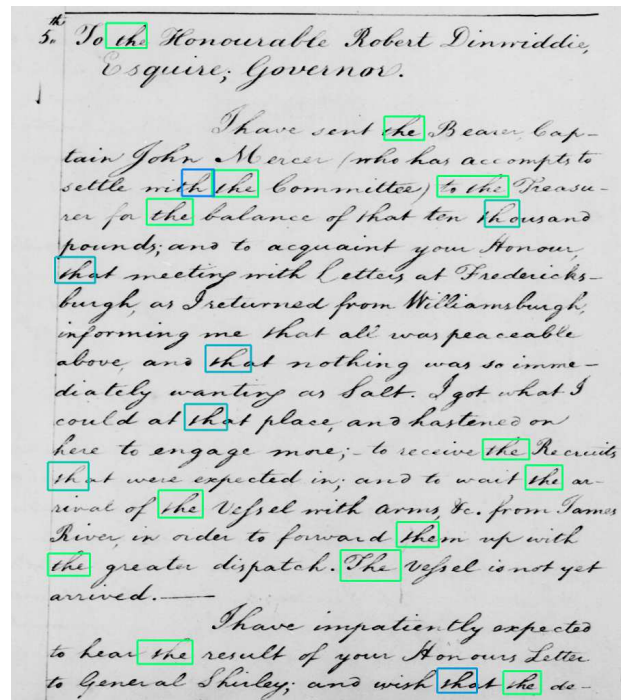 th
5. To the Honourable Robert Dinwiddie,
Esquire; Governor.
I have sent the Bearer Cap-
tain John Mercer (who has accompts to
settle with the Committee) to the Treasu-
rer for the balance of that ten thousand
pounds; and to acquaint your Honour,
that meeting with Letters at Fredericks-
burgh, as I returned from Williamsburgh,
informing me that all was peaceable
above, and that nothing was so imme-
diately wanting as Salt. I got what I
could at that place, and hastened on
here to engage more; to receive the Recruits
that were expected in; and to wait the ar-
rival of the Vessel with arms, &c. from James
River, in order to forward them up with
the greater dispatch. The Vessel is not yet
arrived.
I have impatiently expected
to hear the result of your Honours Letter
to General Shirley; and wish that the de-